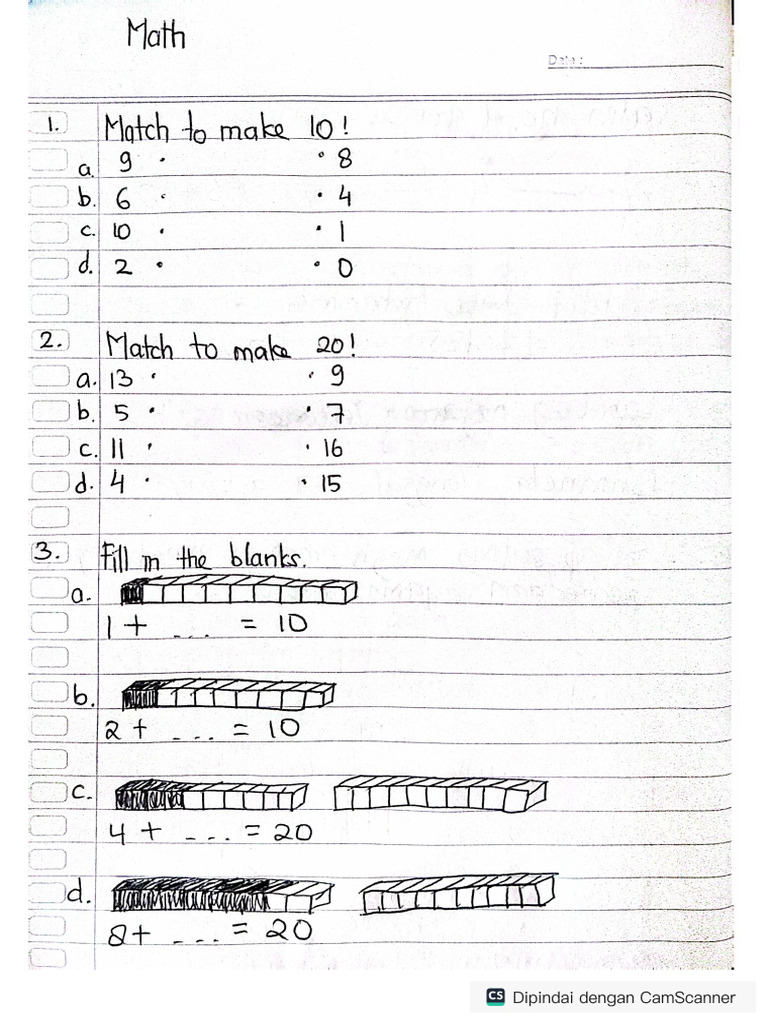 Math
Date:
1. Match to make 10!
a. 9 · · 8
b. 6 · · 4
c. 10 · · 1
d. 2 · · 0
2. Match to make 20!
a. 13 · · 9
b. 5 · · 7
c. 11 · · 16
d. 4 · · 15
3. Fill in the blanks.
a.
1 + ... = 10
b.
2 + ... = 10
c.
4 + ... = 20
d.
8 + ... = 20
CS Dipindai dengan CamScanner